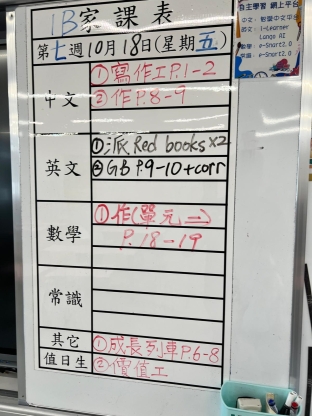 1B家課表
第七週10月18日(星期五)
中文
①寫作工P.1-2
②作P.8-9
英文
①派Red books x2
②GB P.9-10+corr
數學
①作(單元二)
P.18-19
常識
其它
①成長列車P.6-8
值日生
②價值工
自主學習 網上平台
中文:
英文: i-Learner
Lango AI
數學: e-Smart2.0
常識: e-Smart2.0